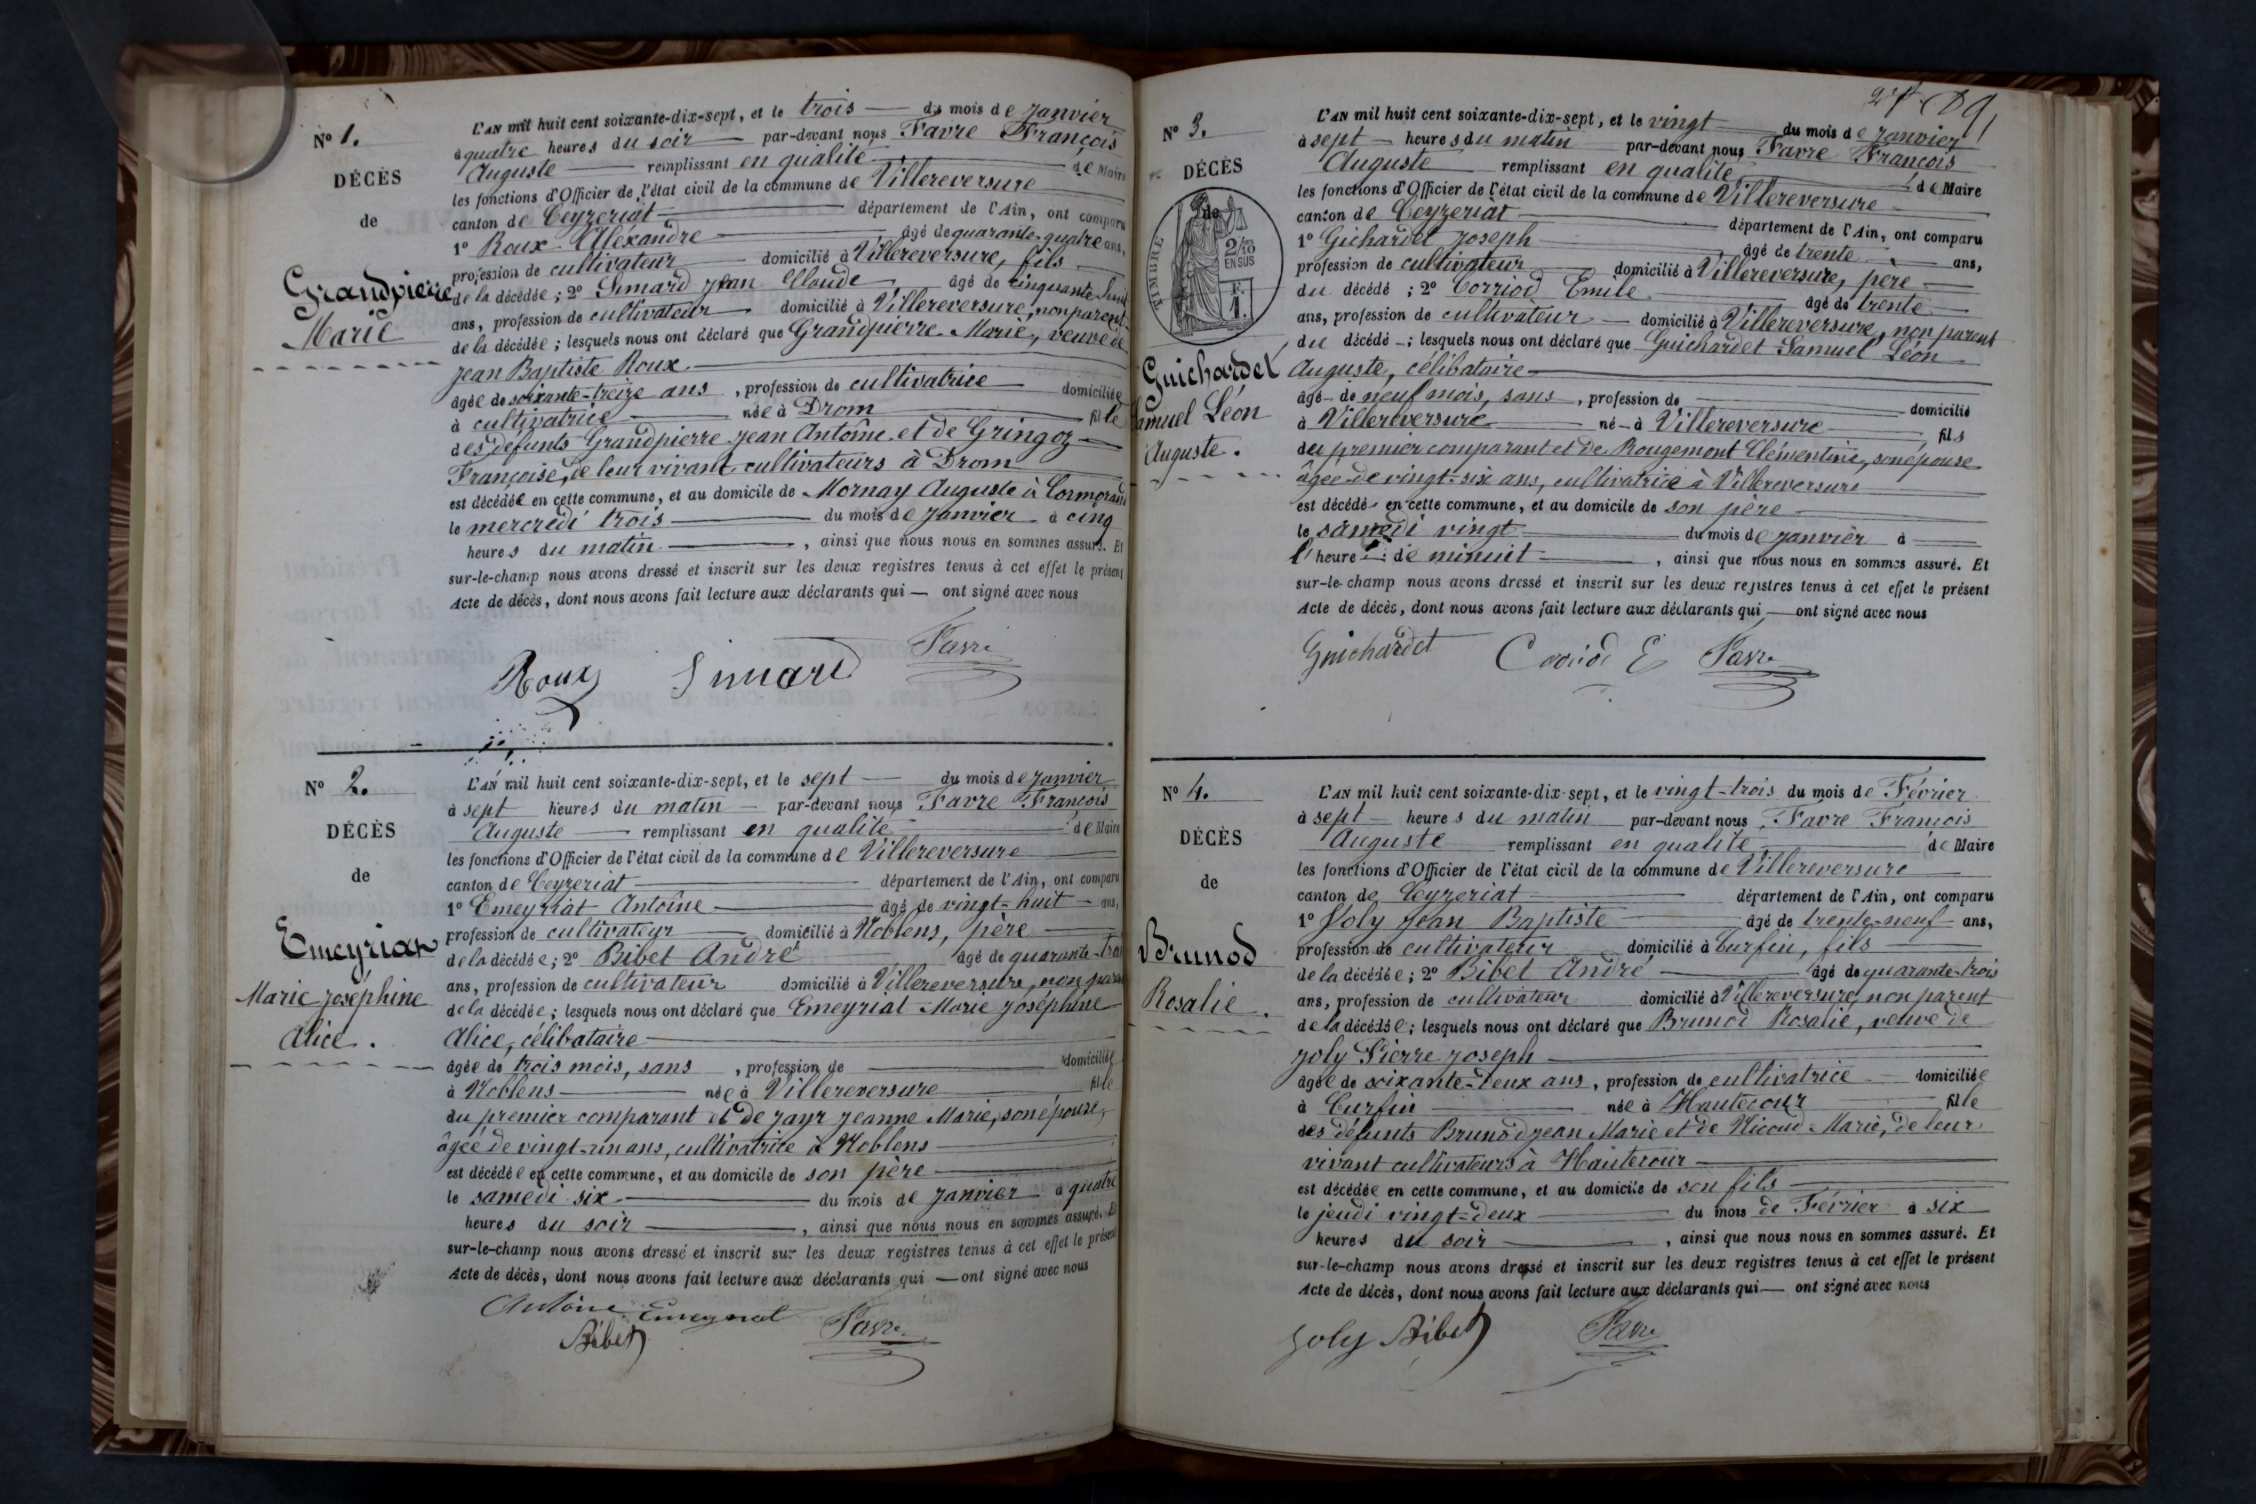 N° 1.
DÉCÈS
de
Grandpierre
Marie
L'AN mil huit cent soixante-dix-sept, et le trois du mois de Janvier
à quatre heures du soir par-devant nous Favre François
Auguste remplissant en qualité de Maire
les fonctions d'Officier de l'état civil de la commune de Villereversure
canton de Ceyzeriat département de l'Ain, ont comparu
1° Roux Alexandre âgé de quarante-quatre ans,
profession de cultivateur domicilié à Villereversure, fils
de la décédée ; 2° Simard Jean Claude âgé de cinquante huit
ans, profession de cultivateur domicilié à Villereversure, non parent
de la décédée ; lesquels nous ont déclaré que Grandpierre Marie, veuve de
Jean Baptiste Roux
âgée de soixante-treize ans, profession de cultivatrice domiciliée
à cultivatrice née à Drom fille
des défunts Grandpierre Jean Antoine et de Gringoz
Françoise, de leur vivant cultivateurs à Drom
est décédée en cette commune, et au domicile de Mornay Auguste à Cormorand
le mercredi trois du mois de Janvier à cinq
heures du matin, ainsi que nous nous en sommes assuré. Et
sur-le-champ nous avons dressé et inscrit sur les deux registres tenus à cet effet le présent
Acte de décès, dont nous avons fait lecture aux déclarants qui — ont signé avec nous
Roux Simard Favre
N° 2.
DÉCÈS
de
Emeyriat
Marie Joséphine
Alice.
L'AN mil huit cent soixante-dix-sept, et le sept du mois de Janvier
à sept heures du matin par-devant nous Favre François
Auguste remplissant en qualité de Maire
les fonctions d'Officier de l'état civil de la commune de Villereversure
canton de Ceyzeriat département de l'Ain, ont comparu
1° Emeyriat Antoine âgé de vingt-huit ans,
profession de cultivateur domicilié à Noblens, père
de la décédée ; 2° Bibet André âgé de quarante-trois
ans, profession de cultivateur domicilié à Villereversure, non parent
de la décédée ; lesquels nous ont déclaré que Emeyriat Marie Joséphine
Alice, célibataire
âgée de trois mois, sans, profession de domiciliée
à Noblens née à Villereversure fille
du premier comparant et de Jayr Jeanne Marie, son épouse,
âgée de vingt-un ans, cultivatrice à Noblens
est décédée en cette commune, et au domicile de son père
le samedi six du mois de Janvier à quatre
heures du soir, ainsi que nous nous en sommes assuré. Et
sur-le-champ nous avons dressé et inscrit sur les deux registres tenus à cet effet le présent
Acte de décès, dont nous avons fait lecture aux déclarants qui — ont signé avec nous
Antoine Emeyriat Favre
Bibet
N° 3.
DÉCÈS
de
TIMBRE
2/10
EN SUS
F.
1.
Guichardet
Samuel Léon
Auguste.
L'AN mil huit cent soixante-dix-sept, et le vingt du mois de Janvier
à sept heures du matin par-devant nous Favre François
Auguste remplissant en qualité de Maire
les fonctions d'Officier de l'état civil de la commune de Villereversure
canton de Ceyzeriat département de l'Ain, ont comparu
1° Gichardet Joseph âgé de trente ans,
profession de cultivateur domicilié à Villereversure, père
du décédé ; 2° Corriod Emile âgé de trente
ans, profession de cultivateur domicilié à Villereversure, non parent
du décédé ; lesquels nous ont déclaré que Guichardet Samuel Léon
Auguste, célibataire
âgé de neuf mois, sans, profession de domicilié
à Villereversure né à Villereversure fils
du premier comparant et de Rougemont Clémentine, son épouse
âgée de vingt-six ans, cultivatrice à Villereversure
est décédé en cette commune, et au domicile de son père
le samedi vingt du mois de Janvier à
l'heure de minuit, ainsi que nous nous en sommes assuré. Et
sur-le-champ nous avons dressé et inscrit sur les deux registres tenus à cet effet le présent
Acte de décès, dont nous avons fait lecture aux déclarants qui — ont signé avec nous
Guichardet Corriod E Favre
N° 4.
DÉCÈS
de
Brunod
Rosalie.
L'AN mil huit cent soixante-dix-sept, et le vingt-trois du mois de Février
à sept heures du matin par-devant nous Favre François
Auguste remplissant en qualité de Maire
les fonctions d'Officier de l'état civil de la commune de Villereversure
canton de Ceyzeriat département de l'Ain, ont comparu
1° Joly Jean Baptiste âgé de trente-neuf ans,
profession de cultivateur domicilié à Curfin, fils
de la décédée ; 2° Bibet André âgé de quarante-trois
ans, profession de cultivateur domicilié à Villereversure, non parent
de la décédée ; lesquels nous ont déclaré que Brunod Rosalie, veuve de
Joly Pierre Joseph
âgée de soixante-deux ans, profession de cultivatrice domiciliée
à Curfin née à Hautecour fille
des défunts Brunod Jean Marie et de Nicoud Marie, de leur
vivant cultivateurs à Hautecour
est décédée en cette commune, et au domicile de son fils
le jeudi vingt-deux du mois de Février à six
heures du soir, ainsi que nous nous en sommes assuré. Et
sur-le-champ nous avons dressé et inscrit sur les deux registres tenus à cet effet le présent
Acte de décès, dont nous avons fait lecture aux déclarants qui — ont signé avec nous
Joly Bibet Favre